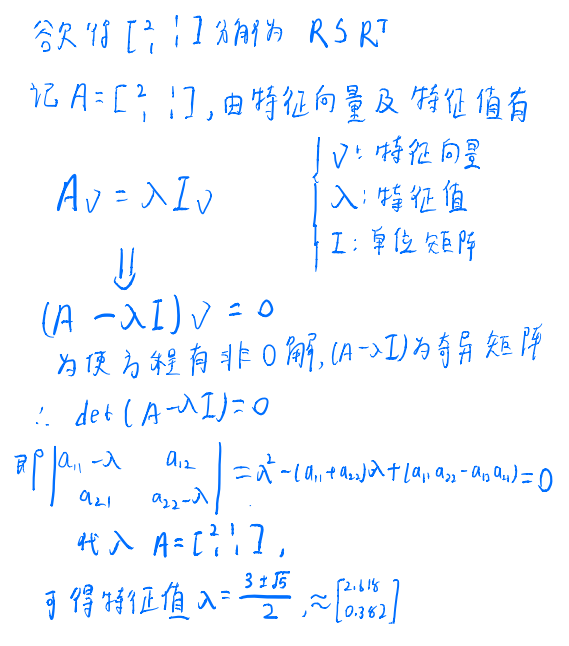 欲将 [2 1 1 1] 分解为 R S Rᵀ
记 A = [2 1 1 1], 由特征向量及特征值有
ν: 特征向量
Aν = λIν
λ: 特征值
I: 单位矩阵
⇓
(A - λI)ν = 0
为使方程有非0解, (A-λI)为奇异矩阵
∴ det(A-λI)=0
即 |a₁₁-λ a₁₂ a₂₁ a₂₂-λ| = λ² - (a₁₁+a₂₂)λ + (a₁₁a₂₂ - a₁₂a₂₁) = 0
代入 A = [2 1 1 1],
可得特征值 λ = (3±√5)/2, ≈ [2.618 0.382]